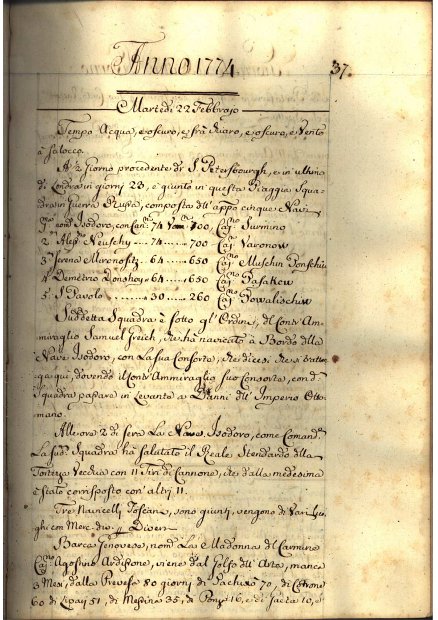 Anno 1774.
37.
Martedi 22 Febbrajo
Tempo Acqua, e oscuro, e frà chiaro, e oscuro, e Vento
a Scilocco.
A 2 Giorno procedente di S. Petersbourgh, e in ultimo
di Londra in giorni 23, è giunto in questa Piaggia Squa-
dra in Guerra Russa, composta dell' app.o cinque Navi
1. nom. Isodoro, con Can.ni 74 Uom.ni 700, Cap.no Surmino
2. Aless. Neuschy — 74 — 700, Cap. Varonow
3. Irena Mironositz — 64 — 650 Cap.no Muschin Ponschin
4. Demetrio Donshoy — 64 — 650 Cap.no Pasakow
5. S. Pavolo — 30 — 260 Cap.no Powalischiw
Suddetta Squadra è sotto gl' Ordini, del Contr' Am-
miraglio Samuel Greich, che hà navicato à Bordo della
Nave Isodoro, con La sua Consorte, che dicesi che si tratte-
ga qui, dovendo il Contr' Ammiraglio suo Consorte, con d.a
Squadra passare in Levante a Danni dell' Imperio Otto-
mano.
All' ore 2 di sera La Nave Isodoro, come Comand.te
La sud.a Squadra ha salutato il Reale Stendardo della
Fortezza Vecchia con 11 Tiri di Cannone, che dalla medesima
è stato corrisposto con altri 11.
Tre Navicelli Toscani, sono giunti, vengono da Vari Luo-
ghi con Merc. Diversi
Barca Genovese, nom. La Madonna del Carmine
Cap.no Agostino Ardisone, viene dal Golfo dell' Arta, manca
3 Mesi, dalla Prevesa 80 giorni, di Pachisù 70, di Cotrone
60 di Lipari 51, di Messina 35, di Ponza 16, e di Gaeta 10, e